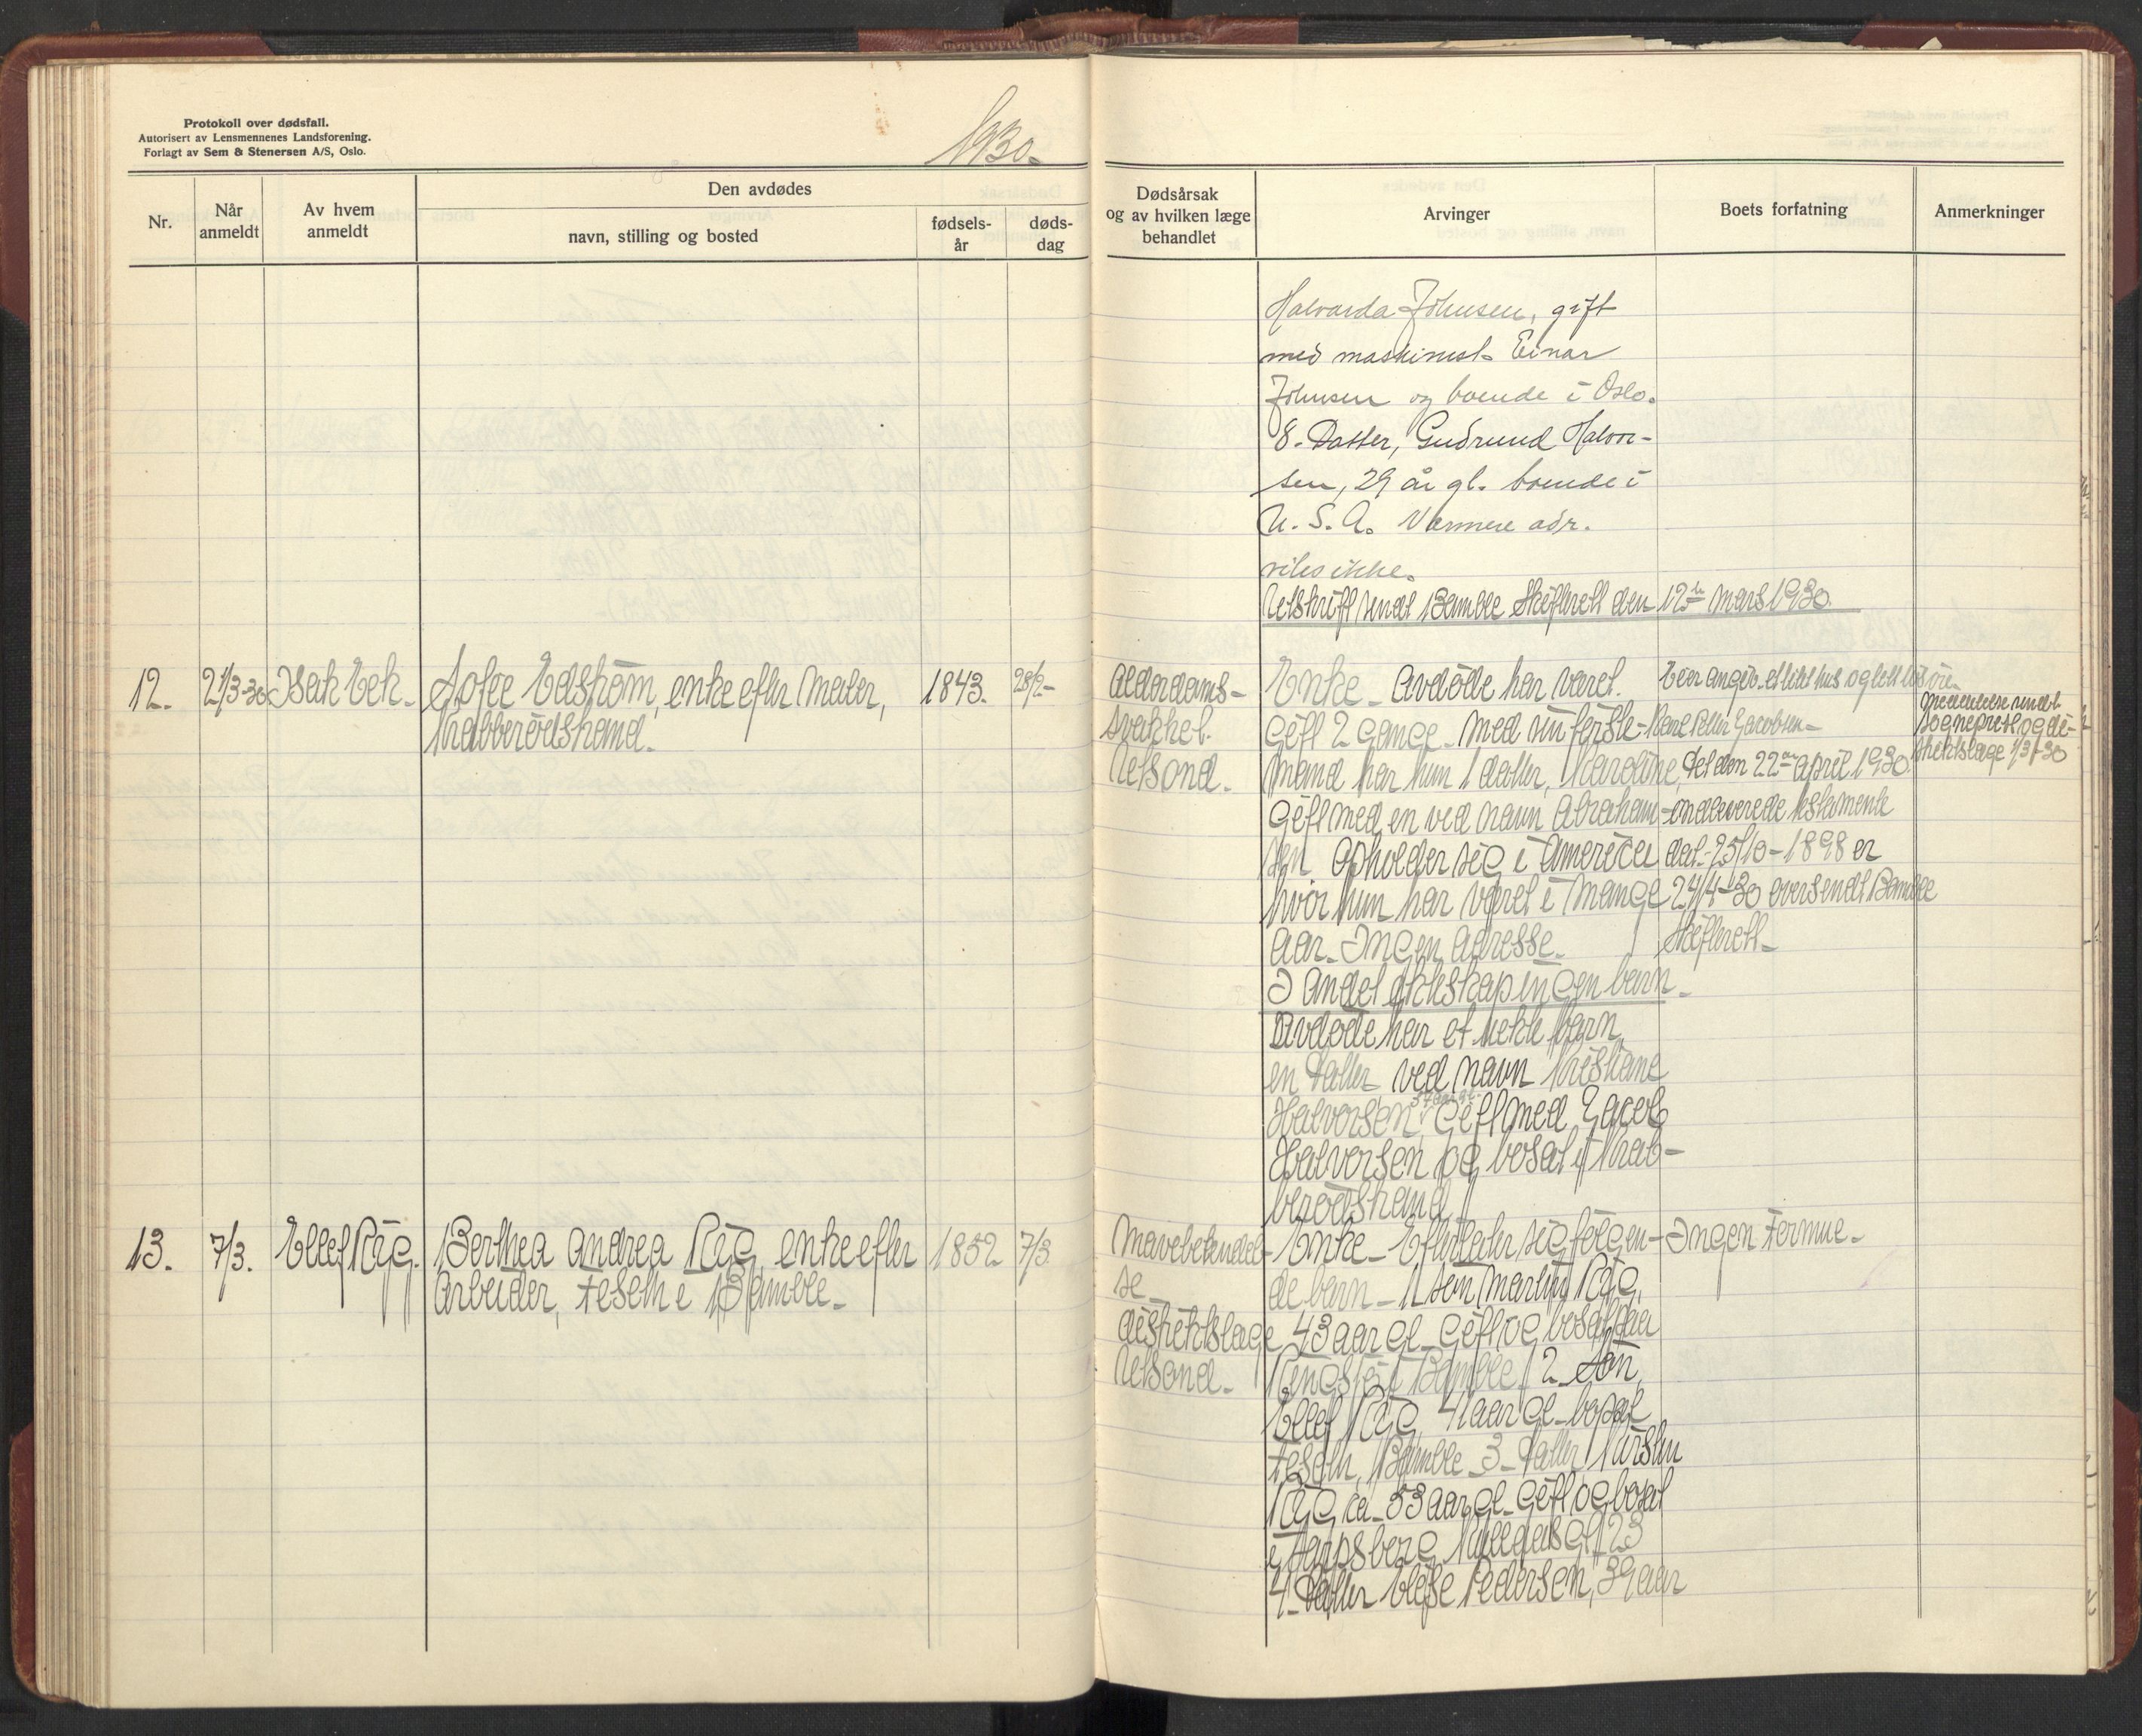 Protokoll over dødsfall.
Autorisert av Lensmennenes Landsforening.
Forlagt av Sem & Stenersen A/S, Oslo.
1930.
Nr.
Når anmeldt
Av hvem anmeldt
Den avdødes
navn, stilling og bosted
fødsels-år
døds-dag
Dødsårsak og av hvilken læge behandlet
Arvinger
Boets forfatning
Anmerkninger
Halvarda Johnsen, gift
med maskinist Einar
Johnsen og boende i Oslo.
8. Datter, Gudrund Halvor-
sen, 29 år gl. boende i
U.S.A. Nærmere adr.
vites ikke.
Utskrift sendt Bamble Skifterett den 12te Mars 1930.
12.
2/3-30
Isak Eek.
Sofie Edstrøm, enke efter Maler,
Krabberødstrand.
1843.
28/2-
Alderdoms-
svakhet.
Utsond.
Enke - Avdøde har været
gift 2 gange. Med sin første
mand har hun 1 datter, Karoline,
Gift med en ved navn Abraham-
sen opholder sig i Amerika
hvor hun har været i mange
aar. Ingen adresse.
I Andet ekteskap ingen barn.
Avdøde har et uekte barn,
en Datter ved navn Kristiane
Halvorsen, Gift med Jacob
Halvorsen og bosat i Krab-
berødstrand
et litet hus og litt
Karl Peter Jacobsen-
den 22de april 1930
testamente
dat. 25/10-1898 er
24/4-30 oversendt Bamble
Skifterett-
Meddelelse sendt
sogneprest og di-
striktslæge 1/3-30
13.
7/3.
Ellef Råg.
Berthea Andrea Råg, enke efter
Arbeider, Feset i Bamble.
1852
7/3
Mavebetendel-
se
distriktslæge
Utsond.
Enke - Efterlater sig følgen-
de barn - 1 søn Martin Råg,
43 aar gl. gift og bosat paa
i Bamble. 2. søn,
Ellef Råg, 41 aar gl. bosat
Feset, Bamble. 3. datter, Kirsten
Råg ca. 53 aar gl. Gift og bosat
i Sarpsborg, 23
4. Datter Elise Pedersen, 39 aar
Ingen Formue.